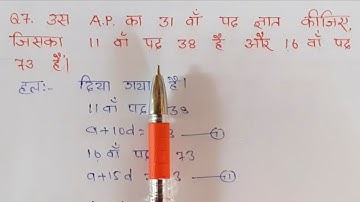 Q7. उस A.P. का 31 वाँ पद ज्ञात कीजिए,
जिसका 11 वाँ पद 38 है और 16 वाँ पद
73 है।
हलः- दिया गया है।
11 वाँ प 38
a+10d= 3 —①
16 वाँ पद 73
a+15d = 3 —⑪